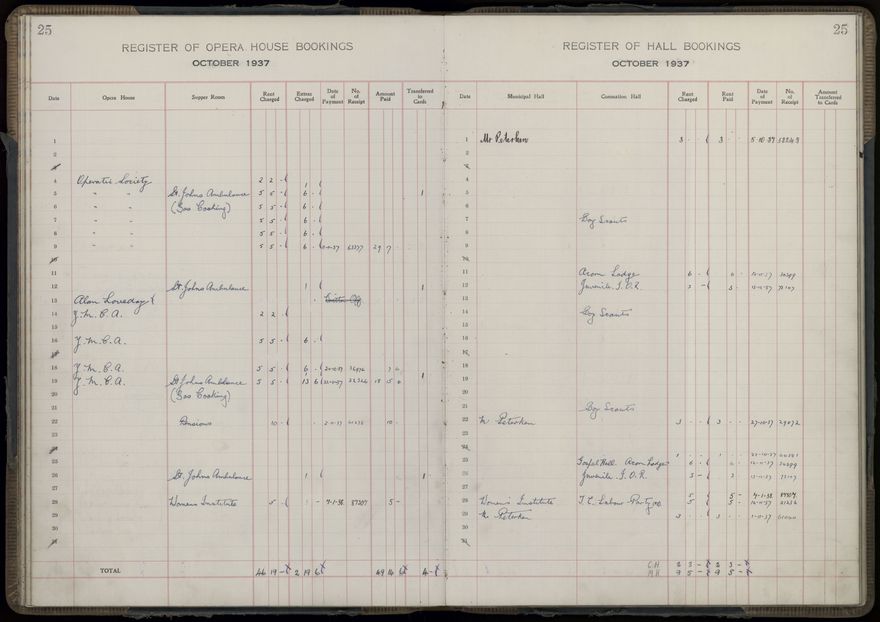 25
REGISTER OF OPERA HOUSE BOOKINGS
OCTOBER 1937
Date Opera House Supper Room Rent Charged Extras Charged Date of Payment No. of Receipt Amount Paid Transferred to Cards
1
2
4 Operatic Society 2 2 - 1
5 " " St. Johns Ambulance 5 5 - 6 - 1
6 " " (Gas Cooking) 5 5 - 6 -
7 " " 5 5 - 6 -
8 " " 5 5 - 6 -
9 " " 5 5 - 6 - 29 7
11
12 St. Johns Ambulance 1 1
13 Alan Loveday
14 Y.M.C.A. 2 2 -
15
16 Y.M.C.A. 5 5 - 6 -
18 Y.M.C.A. 5 5 - 6 -
19 Y.M.C.A. 5 5 - 13 6 1
20 (Gas Cooking)
21
22 Pensions 10 - 10 -
23
25
26 St. Johns Ambulance 1 1
27
28 Womens Institute 5 - 7-1-38 5 -
29
30
TOTAL 46 19 - 2 19 6 49 14 6 4 -
25
REGISTER OF HALL BOOKINGS
OCTOBER 1937
Date Municipal Hall Coronation Hall Rent Charged Rent Paid Date of Payment No. of Receipt Amount Transferred to Cards
1 Mr Peterken 3 - - 3 - - 5-10-37
2
4
5
6
7 Boy Scouts
8
9
11 Acorn Lodge 6 -
12 Juvenile I.O.R. 3 - 3 -
13
14 Boy Scouts
15
16
18
19
20
21 Boy Scouts
22 Mr Peterken 3 - - 3 - - 27-10-37 29072
23
25 Gospel Hall Acorn Lodge 6 -
26 Juvenile I.O.R. 3 - 3 -
27
28 Women's Institute T.C. Labour Party 5 - 5 - 7-1-38
29 Mr Peterken 3 3
30
C.H 2 3 - 2 3 -
M.H 9 5 - 9 5 -